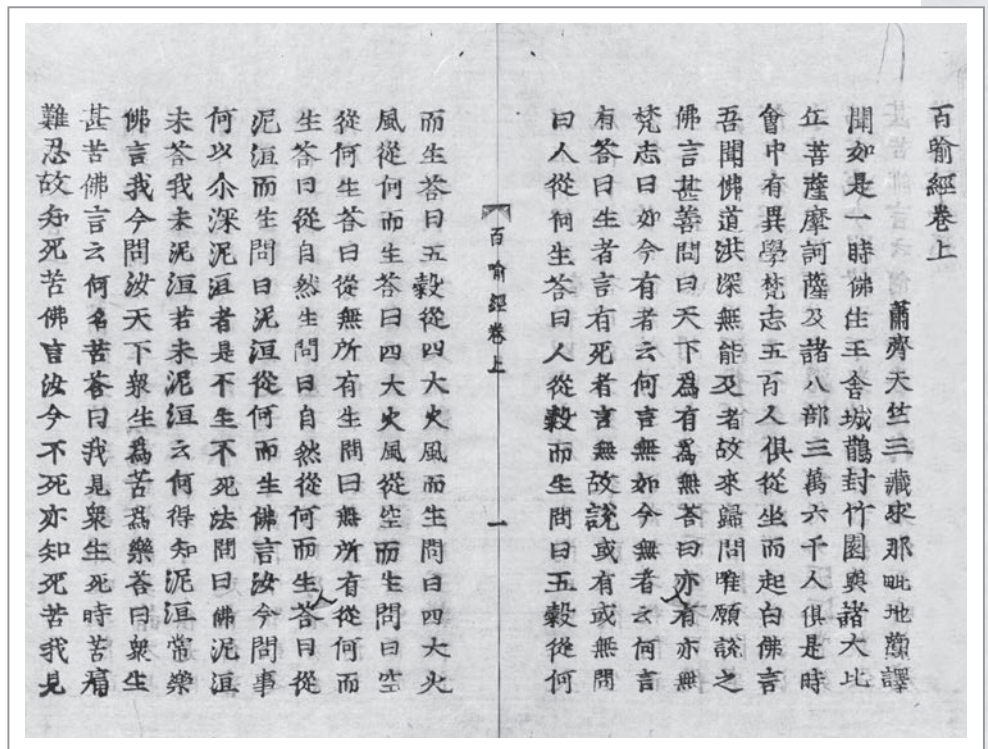 百喻經卷上
蕭齊天竺三藏求那毗地譯
聞如是一時佛住王舍城鵲封竹園與諸大比
丘菩薩摩訶薩及諸八部三萬六千人俱是時
會中有異學梵志五百人俱從坐而起白佛言
吾聞佛道洪深無能及者故來歸問唯願說之
佛言甚善問曰天下爲有爲無答曰亦有亦無
梵志曰如今有者云何言無如今無者云何言
有答曰生者言有死者言無故說或有或無問
曰人從何生答曰人從穀而生問曰五穀從何
百喻經卷上 一
而生答曰五穀從四大火風而生問曰四大火
風從何而生答曰四大火風從空而生問曰空
從何生答曰從無所有生問曰無所有從何而
生答曰從自然生問曰自然從何而生答曰從
泥洹而生問曰泥洹從何而生佛言汝今問事
何以尒深泥洹者是不生不死法問曰佛泥洹
未答我未泥洹若未泥洹云何得知泥洹常樂
佛言我今問汝天下衆生爲苦爲樂答曰衆生
甚苦佛言云何名苦答曰我見衆生死時苦痛
難忍故知死苦佛言汝今不死亦知死苦我見